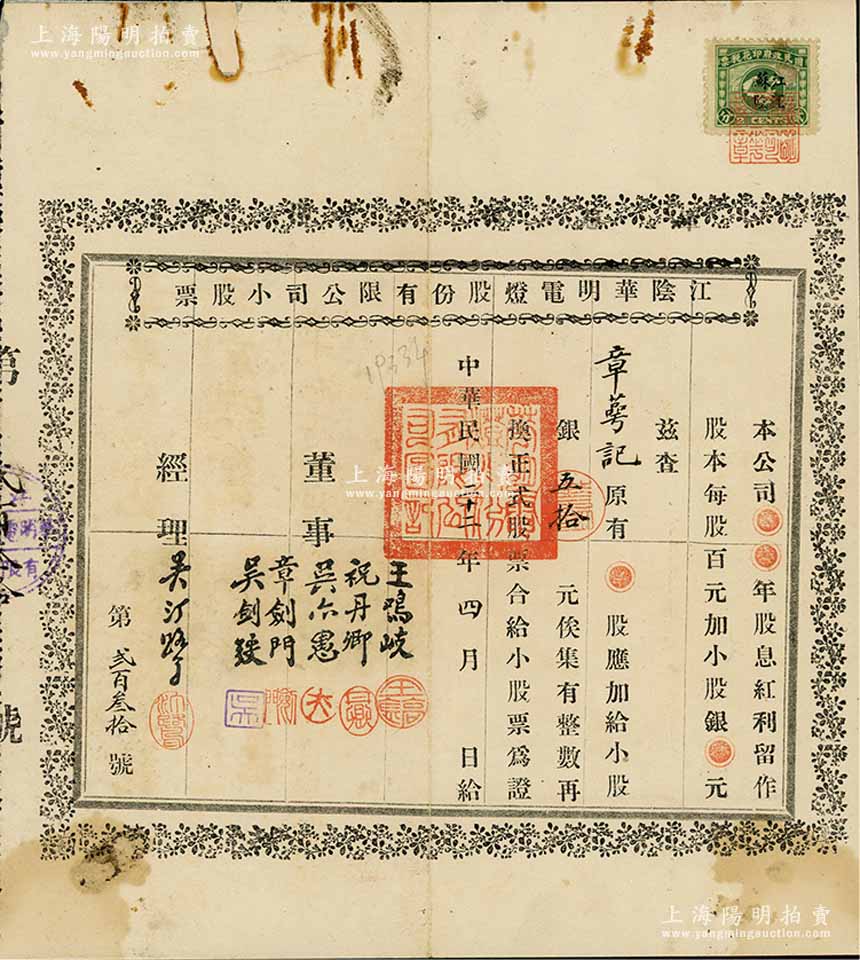 上海陽明拍賣
www.yangmingauction.com
國民政府印花稅票
江蘇
2 CENTS
江陰華明電燈股份有限公司小股票
本公司 年股息紅利留作
股本每股百元加小股銀 元
茲查
章萼記原有 股應加給小股
銀五拾元俟集有整數再
換正式股票合給小股票爲證
中華民國二十二年四月 日給
董事
王鳴岐
祝丹卿
吳亦愚
章劍門
吳劍
經理 吳汀鷺
第弍百叁拾號
第 弍百叁拾 號
10334
上海陽明拍賣
上海陽明拍賣
www.yangmingauction.com